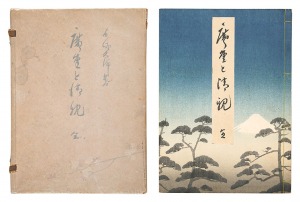 廣重と清親 全
廣重と清親 全